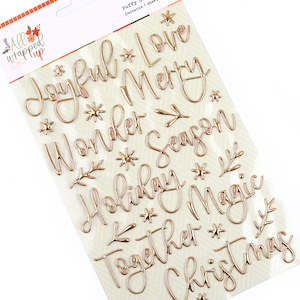 All
wrapped
up
Puffy
Joyful Love
Merry
Wonder Season
Holiday Magic
Together
Christmas